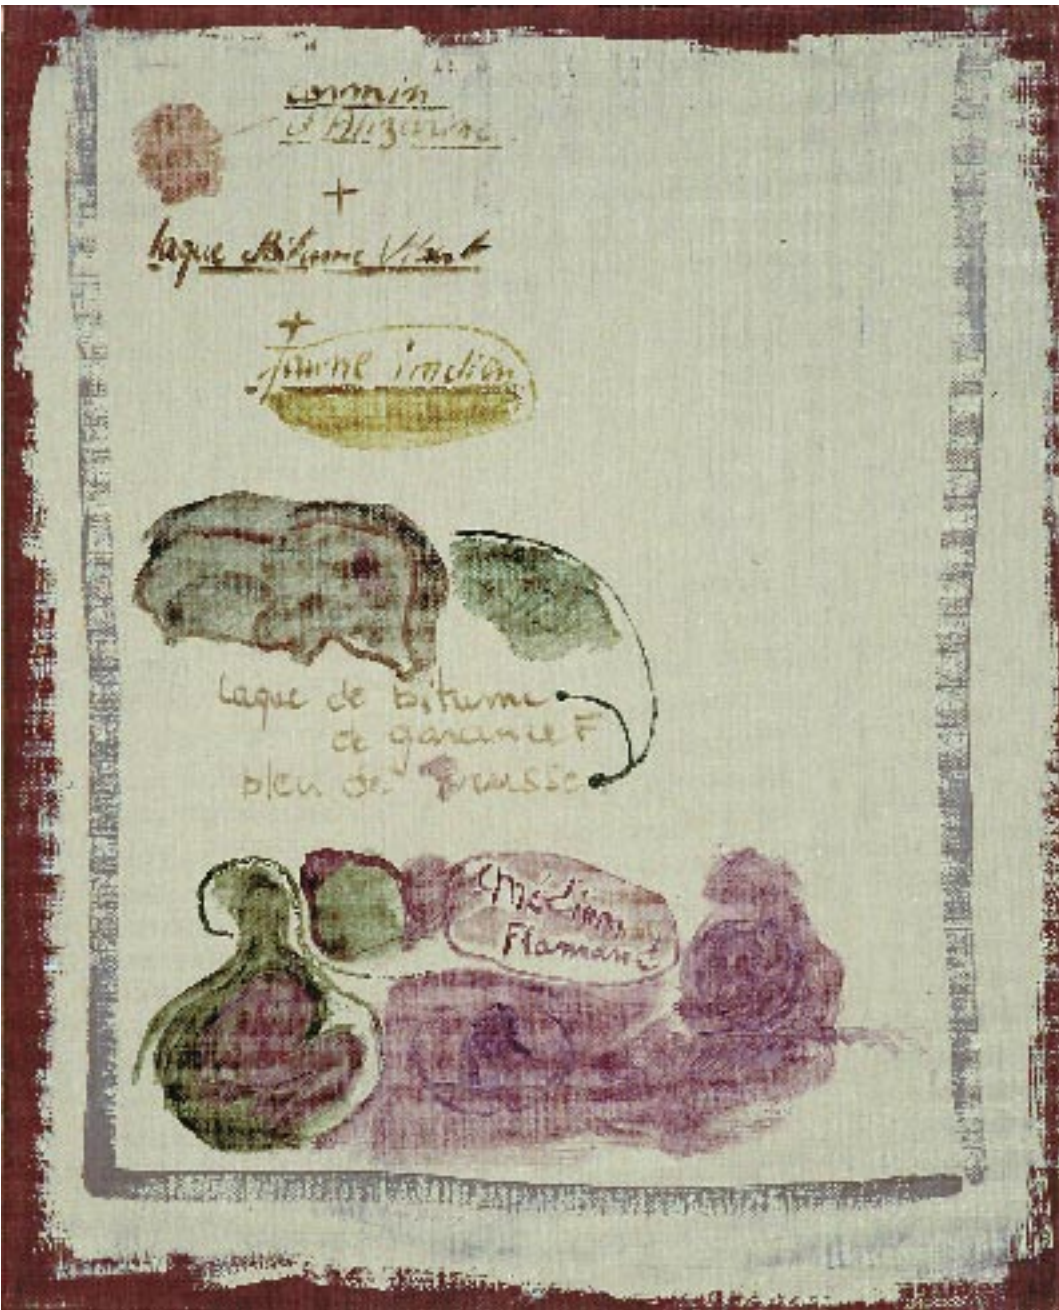 carmin
d'Alizarine
+
laque Bitume
+
jaune indien
laque de bitume
de garance F
bleu de Prusse
Médium
Flamand